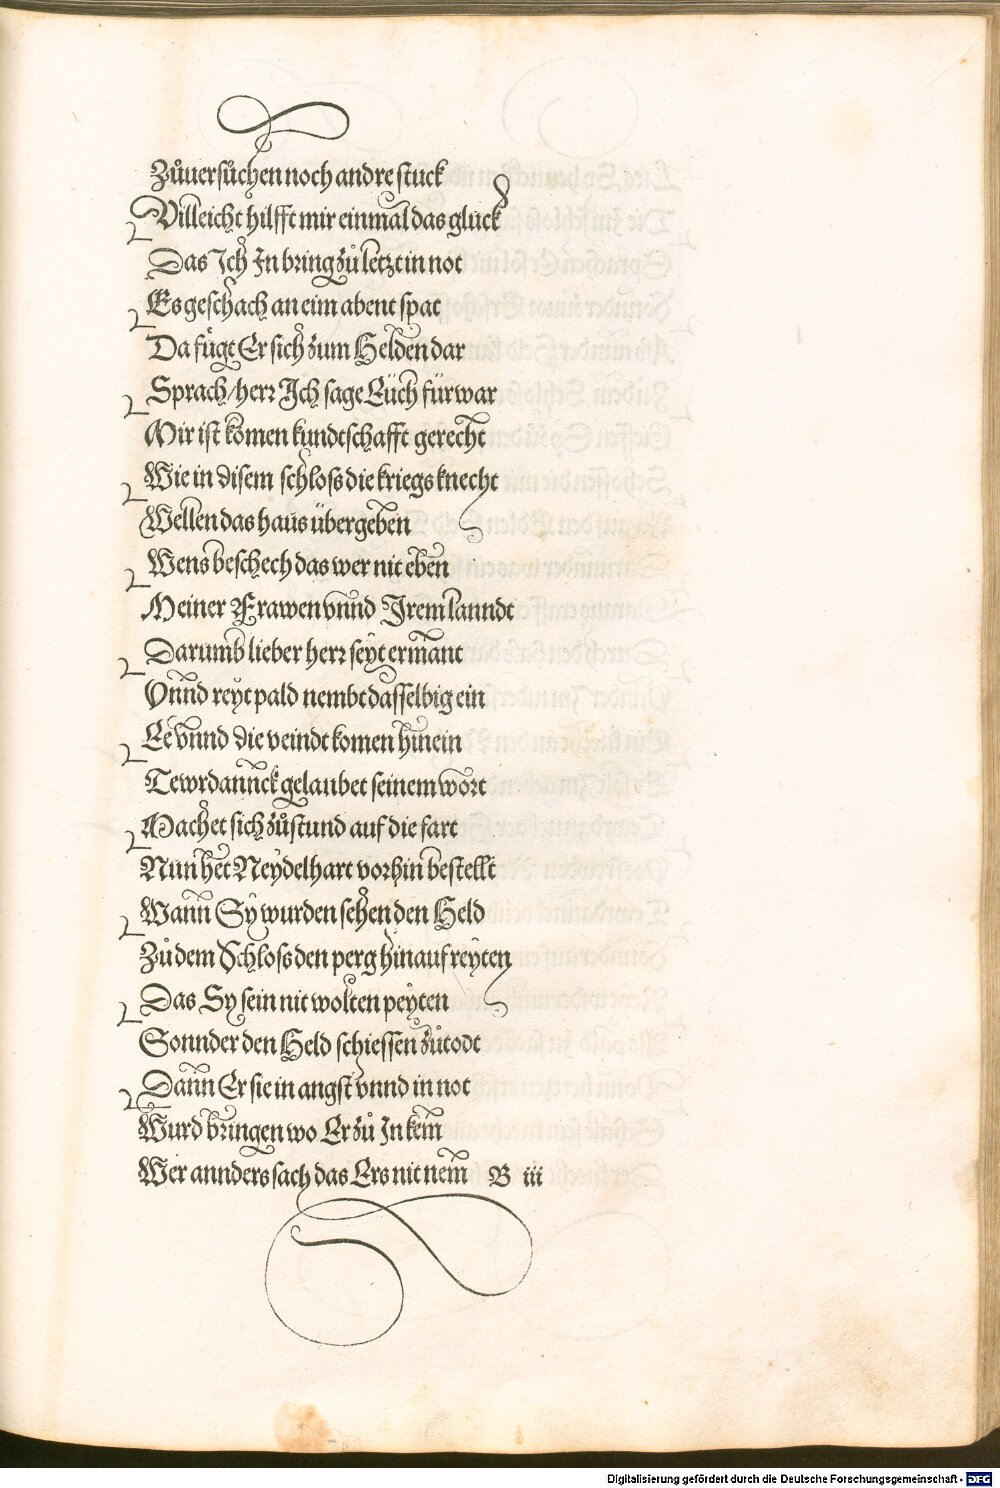 Zůuersůchen noch andre stuck
Villeicht hilfft mir einmal das gluck
Das Ich In bring zů letzt in not
Es geschach an eim abent spat
Da fügt Er sich zum Helden dar
Sprach/herr Ich sage Eüch fürwar
Mir ist komen kundtschafft gerecht
Wie in disem schloss die kriegsknecht
Wellen das haus übergeben
Wens beschech das wer nit eben
Meiner Frawen vnnd Irem lanndt
Darumb lieber herr seyt ermant
Vnnd reyt pald nembt dasselbig ein
Ee vnnd die veindt komen hinein
Tewrdannck gelaubet seinem wort
Machet sich zůstund auf die fart
Nun het Neydelhart vorhin bestellt
Wann Sy wurden sehen den Held
Zů dem Schloss den perg hinauf reyten
Das Sy sein nit wolten peyten
Sonnder den Held schiessen zůtodt
Dann Er sie in angst vnnd in not
Wurd bringen wo Er zů In kem
Wer annders sach das Ers nit nem B iii
Digitalisierung gefördert durch die Deutsche Forschungsgemeinschaft - DFG